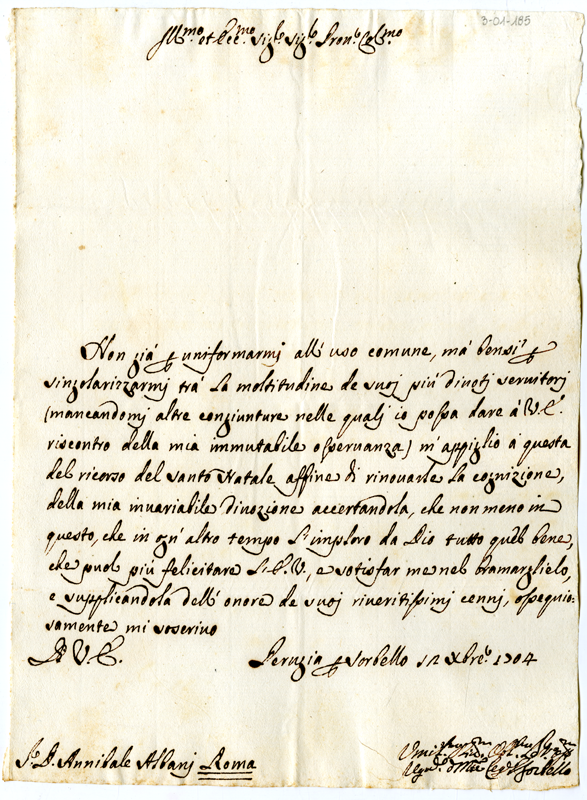 3-01-185
Ill.mo et Ecc.mo Sig.re Sig.re Pron.e Col.mo
Non già p uniformarmj all' uso comune, mà bensì p
singolarizzarmj trà la moltitudine de suoj più diuotj seruitorj
(mancandomj altre congiunture nelle qualj io possa dare à V.E.
riscontro della mia immutabile osseruanza) m' appiglio à questa
del ricorso del santo Natale affine di rinouarle la cognizione,
della mia inuariabile diuozione accertandola, che non meno in
questo, che in ogn' altro tempo l' imploro da Dio tutto quel bene,
che puol più felicitare l' E.V., e sotisfar me nel bramarglielo,
e supplicandola dell' onore de suoj riueritissimj cennj, ossequio-
samente mi soscriuo
Di V.E.
Perugia p Sorbello 12 Xbre. 1704
S.r D. Annibale Albanj Roma
Sorbello